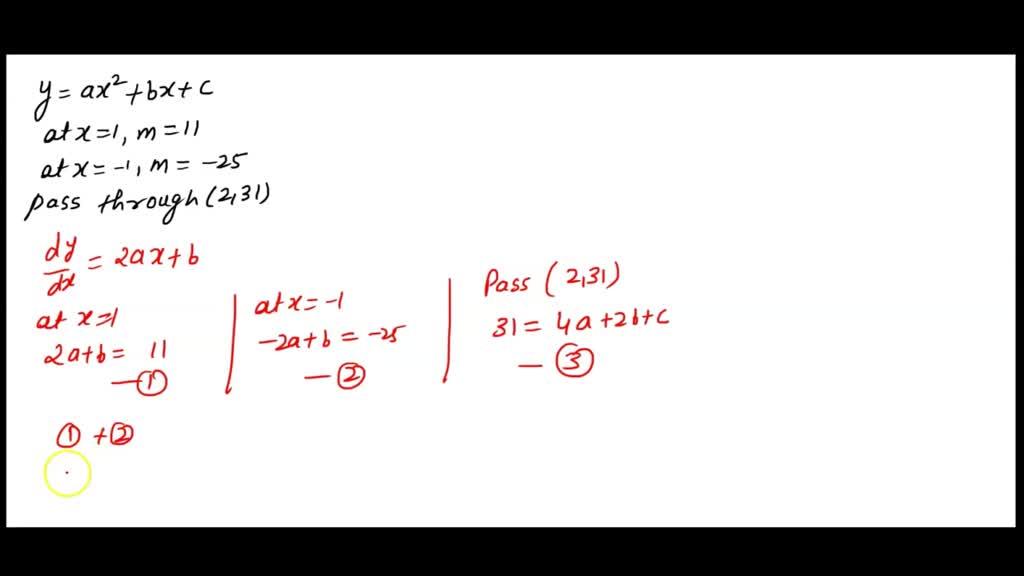 y = ax² + bx + c
at x = 1, m = 11
at x = -1, m = -25
pass through (2,31)
dy/dx = 2ax + b
at x = 1
2a + b = 11
— ①
at x = -1
-2a + b = -25
— ②
Pass (2,31)
31 = 4a + 2b + c
— ③
① + ②